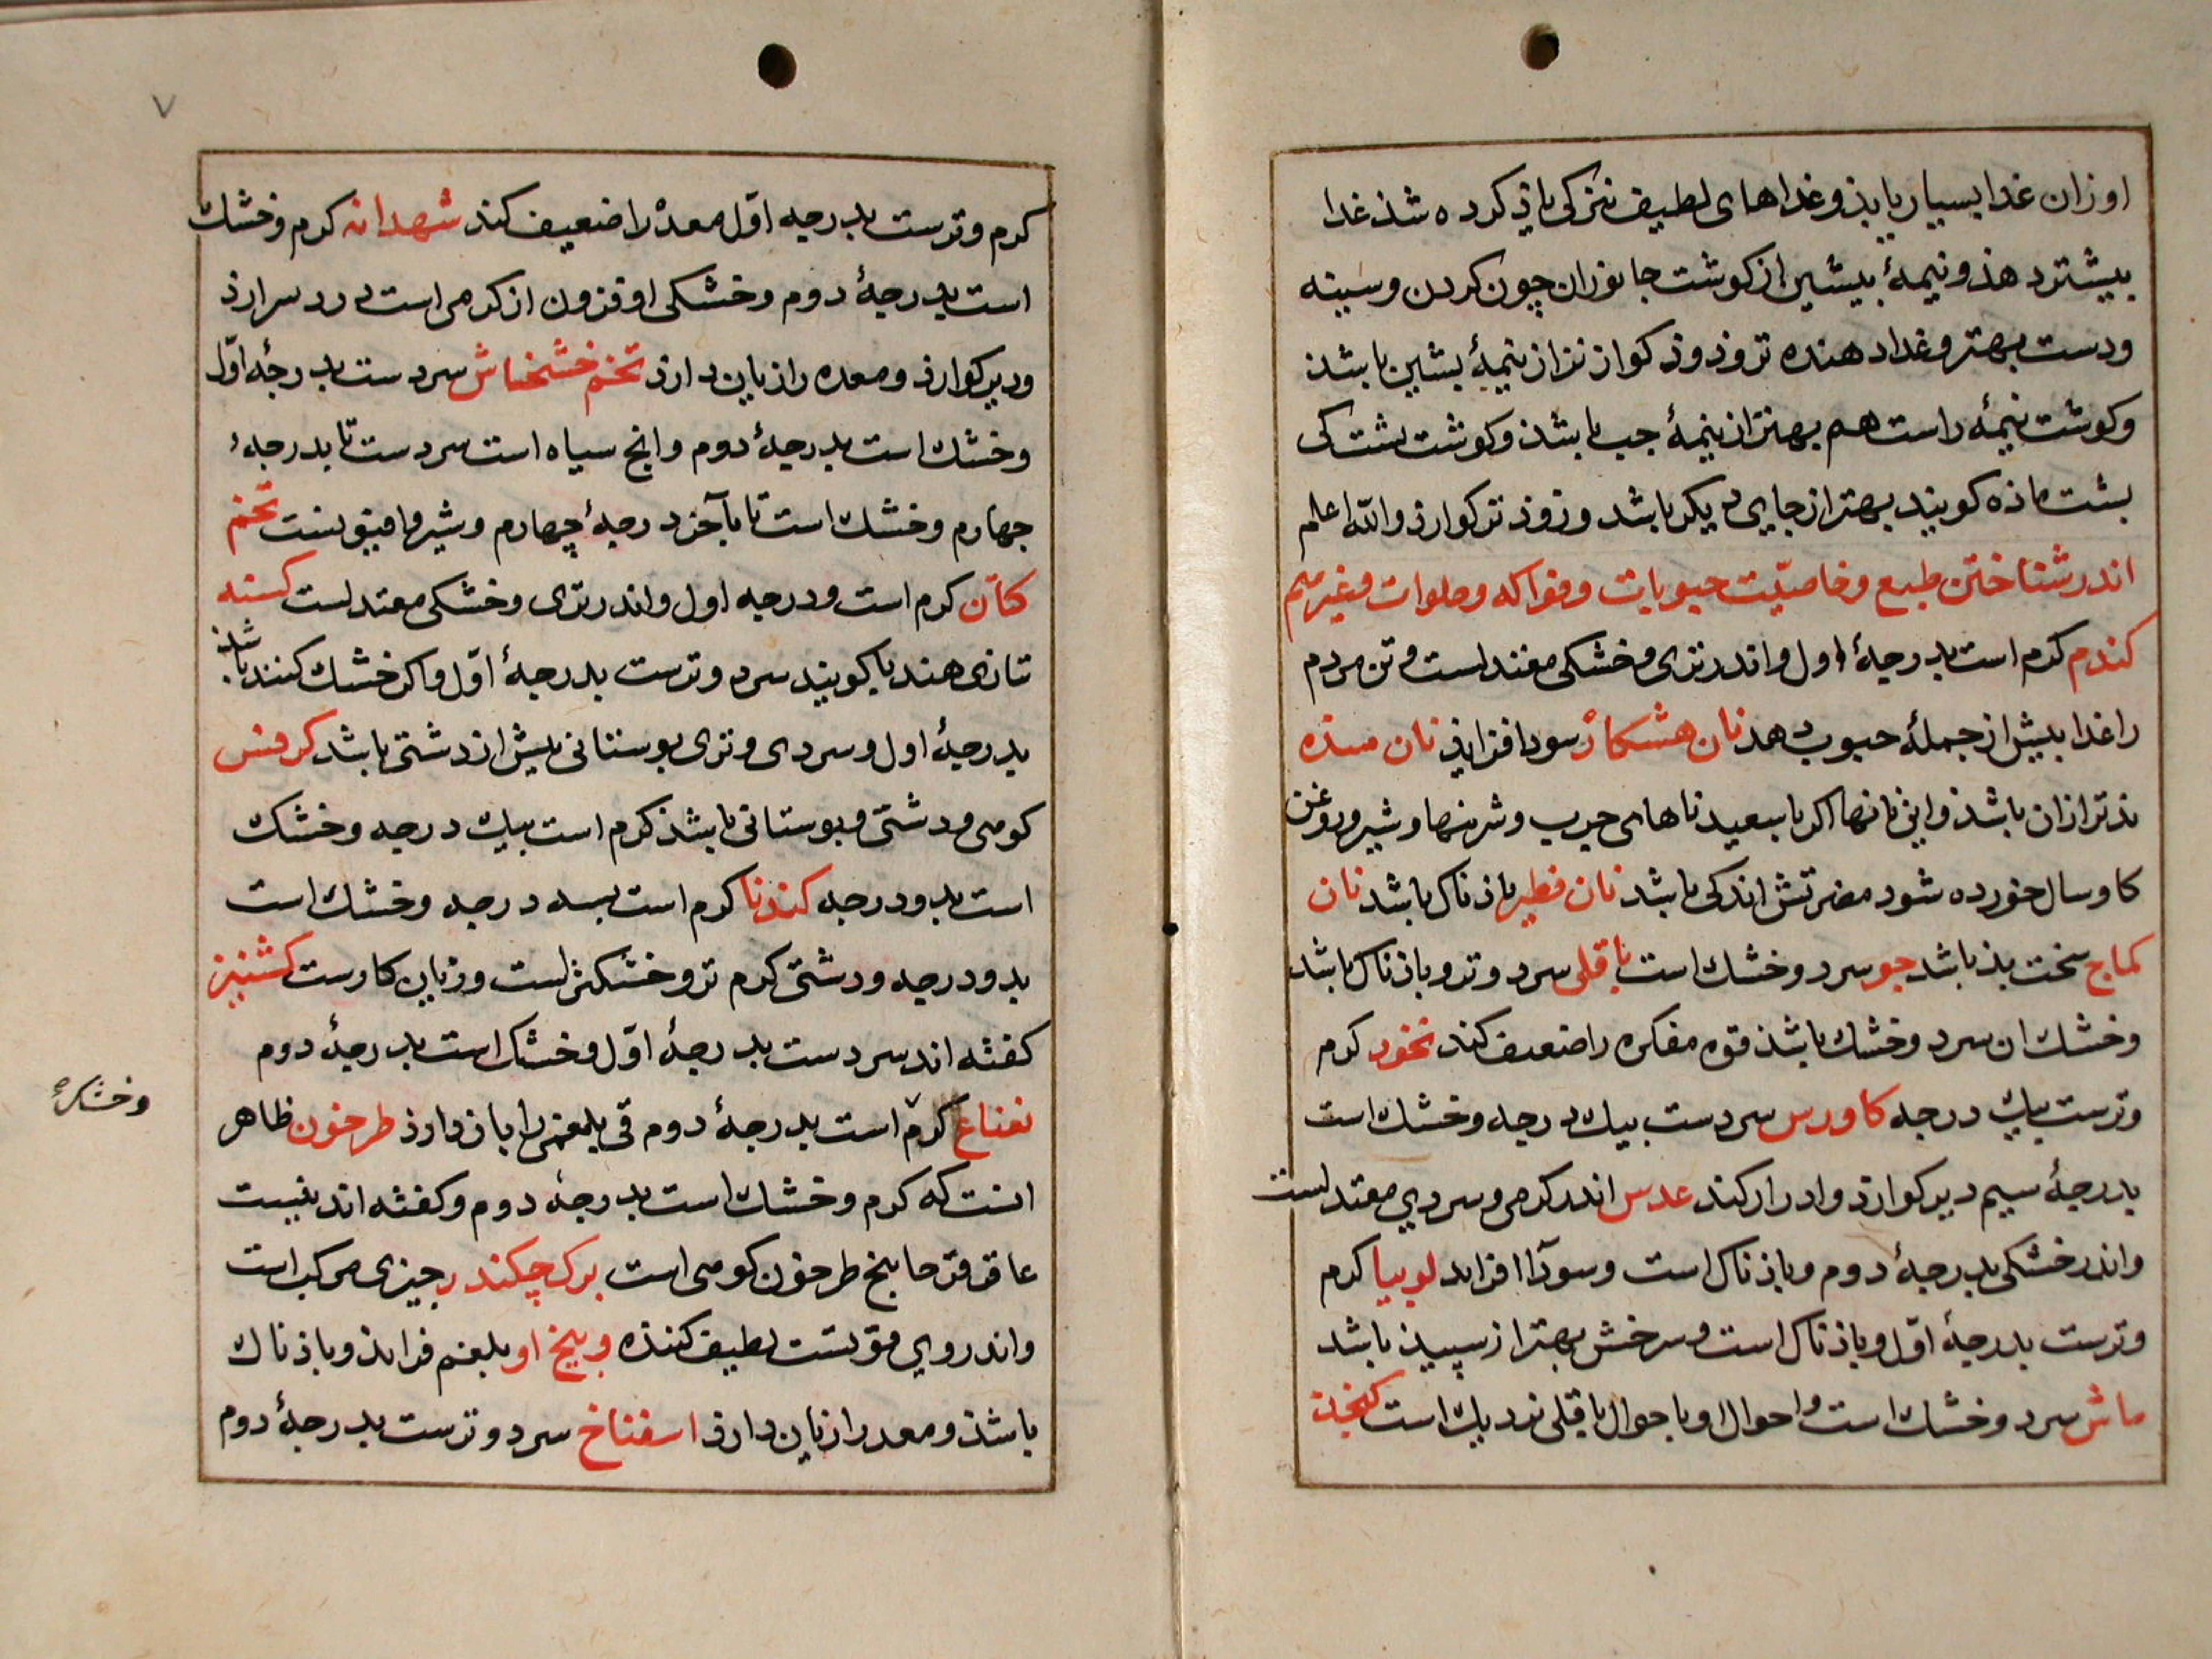 اوزان غدا بسیار یابذ و غداهای لطیف نیز کی یاذ کرده شذ غدا
بیشتر دهذ و نیمهٔ بیشین از کوشت جانوران چون کردن و سینه
ودست بهتر و غدا دهنده تر و زوذ کوارتر از نیمهٔ بشین باشذ
وکوشت نیمهٔ راست هم بهتر از نیمهٔ جب باشذ و کوشت بشت کی
بشت مازه کویند بهتر از جایی دیکر باشد و زوذتر کوارذ والله اعلم
اندر شناختن طبع و خاصیّت حبوبات و فواکه و حلوات و غیرهم
کندم کرم است بدرجهٔ اول و اندر تری و خشکی معتدلست و تن مردم
را غدا بیش از جملهٔ حبوب دهد نان خشکار سودا افزایذ نان میذه
بذتر ازان باشذ و این نانها اکر با سعیدناهای جرب و شرینیها و شیر و روغن
کاو سال خورده شود مضرتش اندکی باشد نان فطیر باذناک باشد نان
کماج سخت بذ باشد جو سرد و خشك است باقلی سرد و تر و باذناک باشد
وخشك ان سرد و خشك باشذ قوه مفکره را ضعیف کند نخود کرم
وترست بیك درجه کاورس سردست بیك درجه و خشك است
بدرجهٔ سیم دیر کوارذ و ادرار کند عدس اندر کرمی و سردی معتدلست
واندر خشکی بدرجهٔ دوم و باذناک است و سودا افزاید لوبیا کرم
وترست بدرجهٔ اوّل و باذناک است و سرخش بهتر از سپیذ باشد
ماش سرد و خشك است و احوال او با حوال باقلی نزدیك است کنجد
۷
کرم وترست بدرجه اوّل معده را ضعیف کند شهدانه کرم و خشك
است بدرجهٔ دوم و خشکی او فزون از کرمی است درد سر ارذ
ودیر کوارذ و معده را زیان دارذ تخم خشخاش سردست بدرجهٔ اوّل
وخشك است بدرجهٔ دوم و انج سیاه است سردست تا بدرجهٔ
جهارم و خشك است تا بآخر درجهٔ چهارم و شیره افیونست تخم
کتّان کرم است ودرجه اول و اندر تری و خشکی معتدلست کسنه
تازی هندبا کویند سرد و ترست بدرجهٔ اوّل و اکر خشك کنند باشذ
بدرجهٔ اول و سردی و تری بوستانی بیش از دشتی باشد کرفس
کوهی و دشتی و بوستانی باشذ کرم است بیك درجه و خشك
است بدو درجه کندنا کرم است بسه درجه و خشك است
بدو درجه و دشتی کرم تر و خشکترست و زیان کارست کشنیز
کفته اند سردست بدرجهٔ اوّل و خشك است بدرجهٔ دوم
نعناع کرم است بدرجهٔ دوم قی بلغمی را باز دارذ طرخون ظاهر
وخشک
انست که کرم و خشك است بدرجهٔ دوم و کفته اند نیست
عاقرقرحا بیخ طرخون کوهی است برک چکندر جیزی مرکب است
واندر وی قوتست لطیف کننده و بیخ او بلغم فزایذ و باذناك
باشذ و معده را زیان دارذ اسفناخ سرد و ترست بدرجهٔ دوم